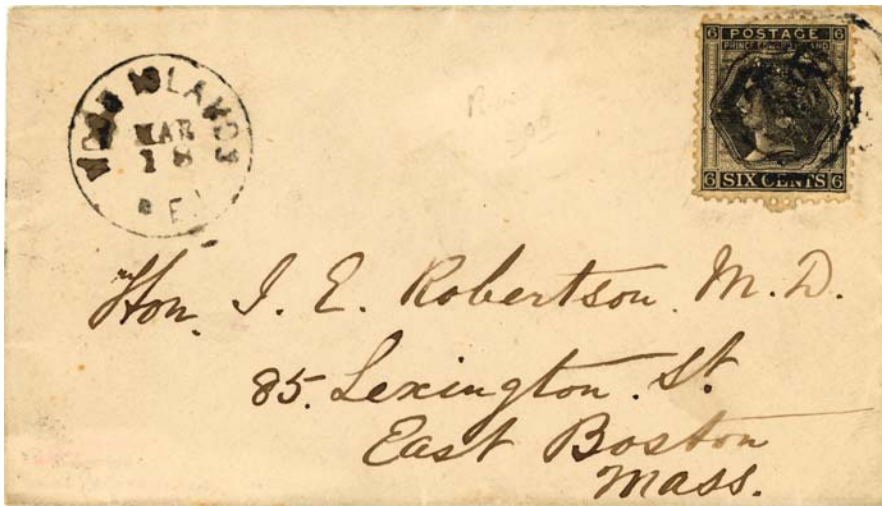 ISLANDS
MAR
18
6 POSTAGE 6
PRINCE EDWARD ISLAND
6 SIX CENTS 6
Hon. J. E. Robertson. M.D.
85. Lexington. St.
East Boston
Mass.